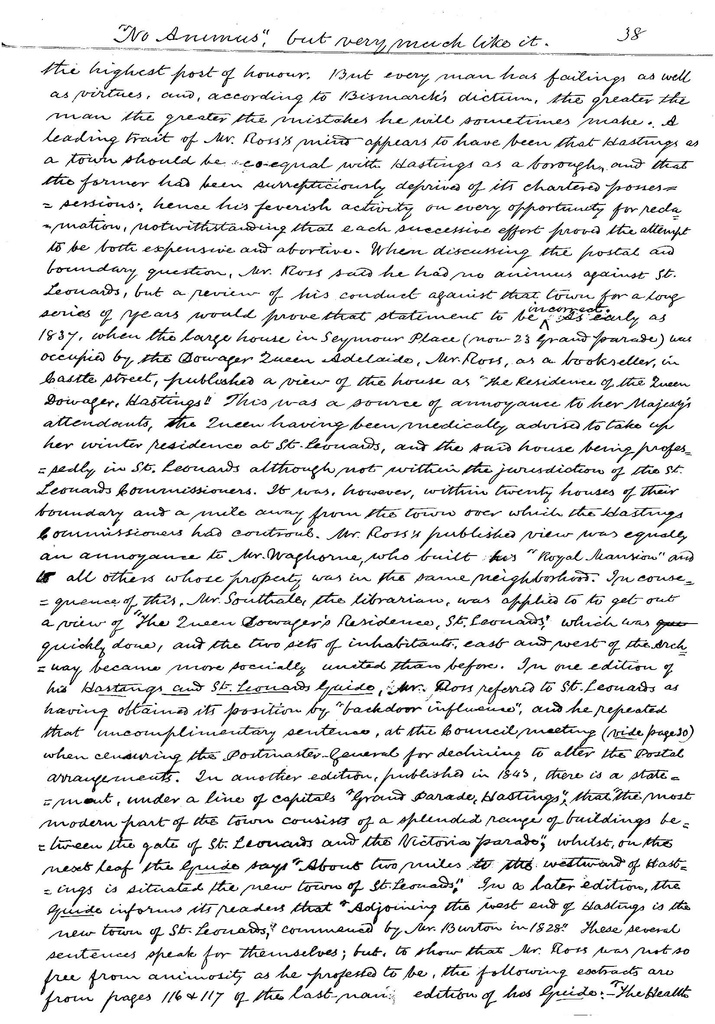 "No Animus", but very much like it. 38
the highest post of honour. But every man has failings as well
as virtues, and, according to Bismarck's dictum, the greater the
man the greater the mistakes he will sometimes make. A
leading trait of Mr. Ross's mind appears to have been that Hastings as
a town should be co-equal with Hastings as a borough, and that
the former had been surrepticiously deprived of its chartered posses=
=sessions; hence his feverish activity on every opportunity for recla=
=mation, notwithstanding that each successive effort proved the attempt
to be both expensive and abortive. When discussing the postal and
boundary question, Mr. Ross said he had no animus against St.
Leonards, but a review of his conduct against that town for a long
series of years would prove that statement to be incorrect. As early as
1837, when the large house in Seymour Place (now 23 Grand parade) was
occupied by the Dowager Queen Adelaide, Mr. Ross, as a bookseller, in
Castle street, published a view of the house as "The Residence of the Queen
Dowager, Hastings". This was a source of annoyance to her Majesty's
attendants, the Queen having been medically advised to take up
her winter residence at St. Leonards, and the said house being profes=
=sedly in St. Leonards although not within the jurisdiction of the St.
Leonards Commissioners. It was, however, within twenty houses of their
boundary and a mile away from the town over which the Hastings
Commissioners had controul. Mr. Ross's published view was equally
an annoyance to Mr. Waghorne, who built his "Royal Mansion" and
to all others whose property was in the same neighborhood. In conse=
=quence of this, Mr. Southall, the librarian, was applied to to get out
a view of "The Queen Dowager's Residence, St. Leonards," which was
quickly done, and the two sets of inhabitants, east and west of the Arch=
=way became more socially united than before. In one edition of
his Hastings and St. Leonards Guide, Mr. Ross referred to St. Leonards as
having obtained its position by "backdoor influence", and he repeated
that uncomplimentary sentence, at the Council meeting (vide page 30)
when censuring the Postmaster-General for declining to alter the Postal
arrangements. In another edition, published in 1843, there is a state=
=ment, under a line of capitals "Grand Parade, Hastings", that "the most
modern part of the town consists of a splendid range of buildings be=
=tween the gate of St. Leonards and the Victoria parade", whilst, on the
next leaf the Guide says "About two miles to the westward of Hast=
=ings is situated the new town of St. Leonards," In a later edition, the
Guide informs its readers that "Adjoining the west end of Hastings is the
new town of St. Leonards," commenced by Mr. Burton in 1828". These several
sentences speak for themselves; but, to show that Mr. Ross was not so
free from animosity as he professed to be, the following extracts are
from pages 116 & 117 of the last-nam edition of his Guide:- "The Health